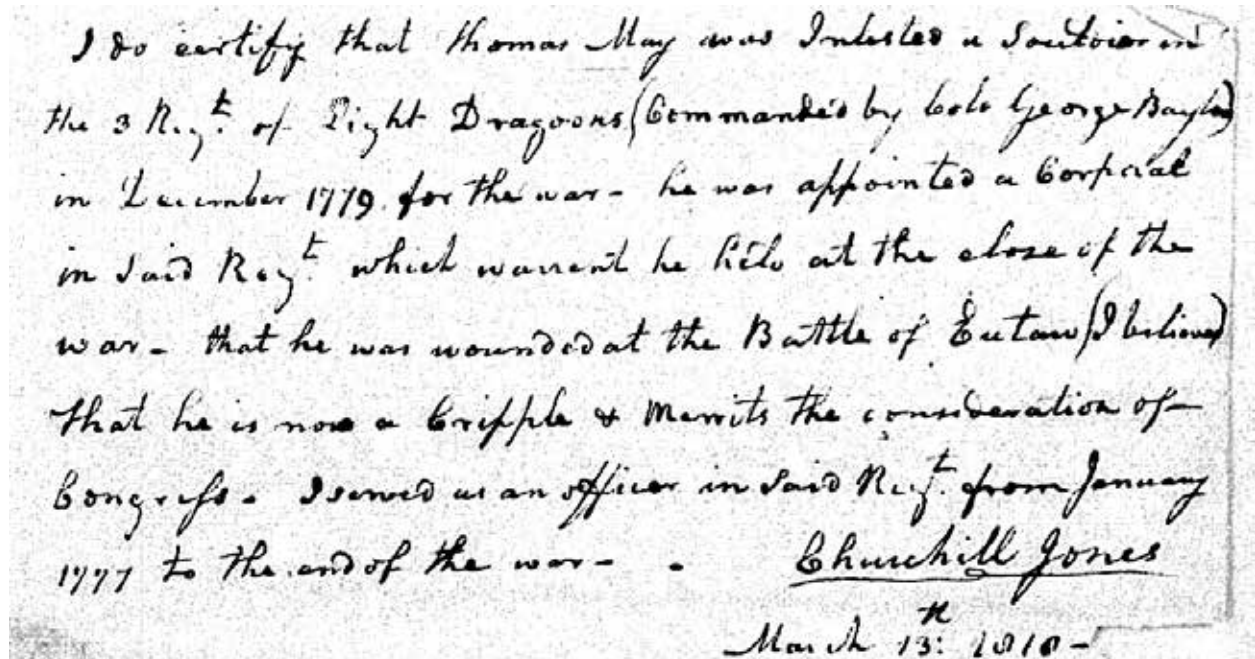 I do certify that Thomas May was Inlisted a Souldier in
the 3 Regt. of Light Dragoons (Commanded by Colo George Baylor)
in December 1779 for the war - he was appointed a Corperal
in said Regt. which warrent he held at the close of the
war - that he was wounded at the Battle of Eutaw (I believe)
that he is now a Cripple & Merrits the consideration of
Congress. I served as an officer in said Regt. from January
1777 to the end of the war -
Churchill Jones
March 13th: 1818 -